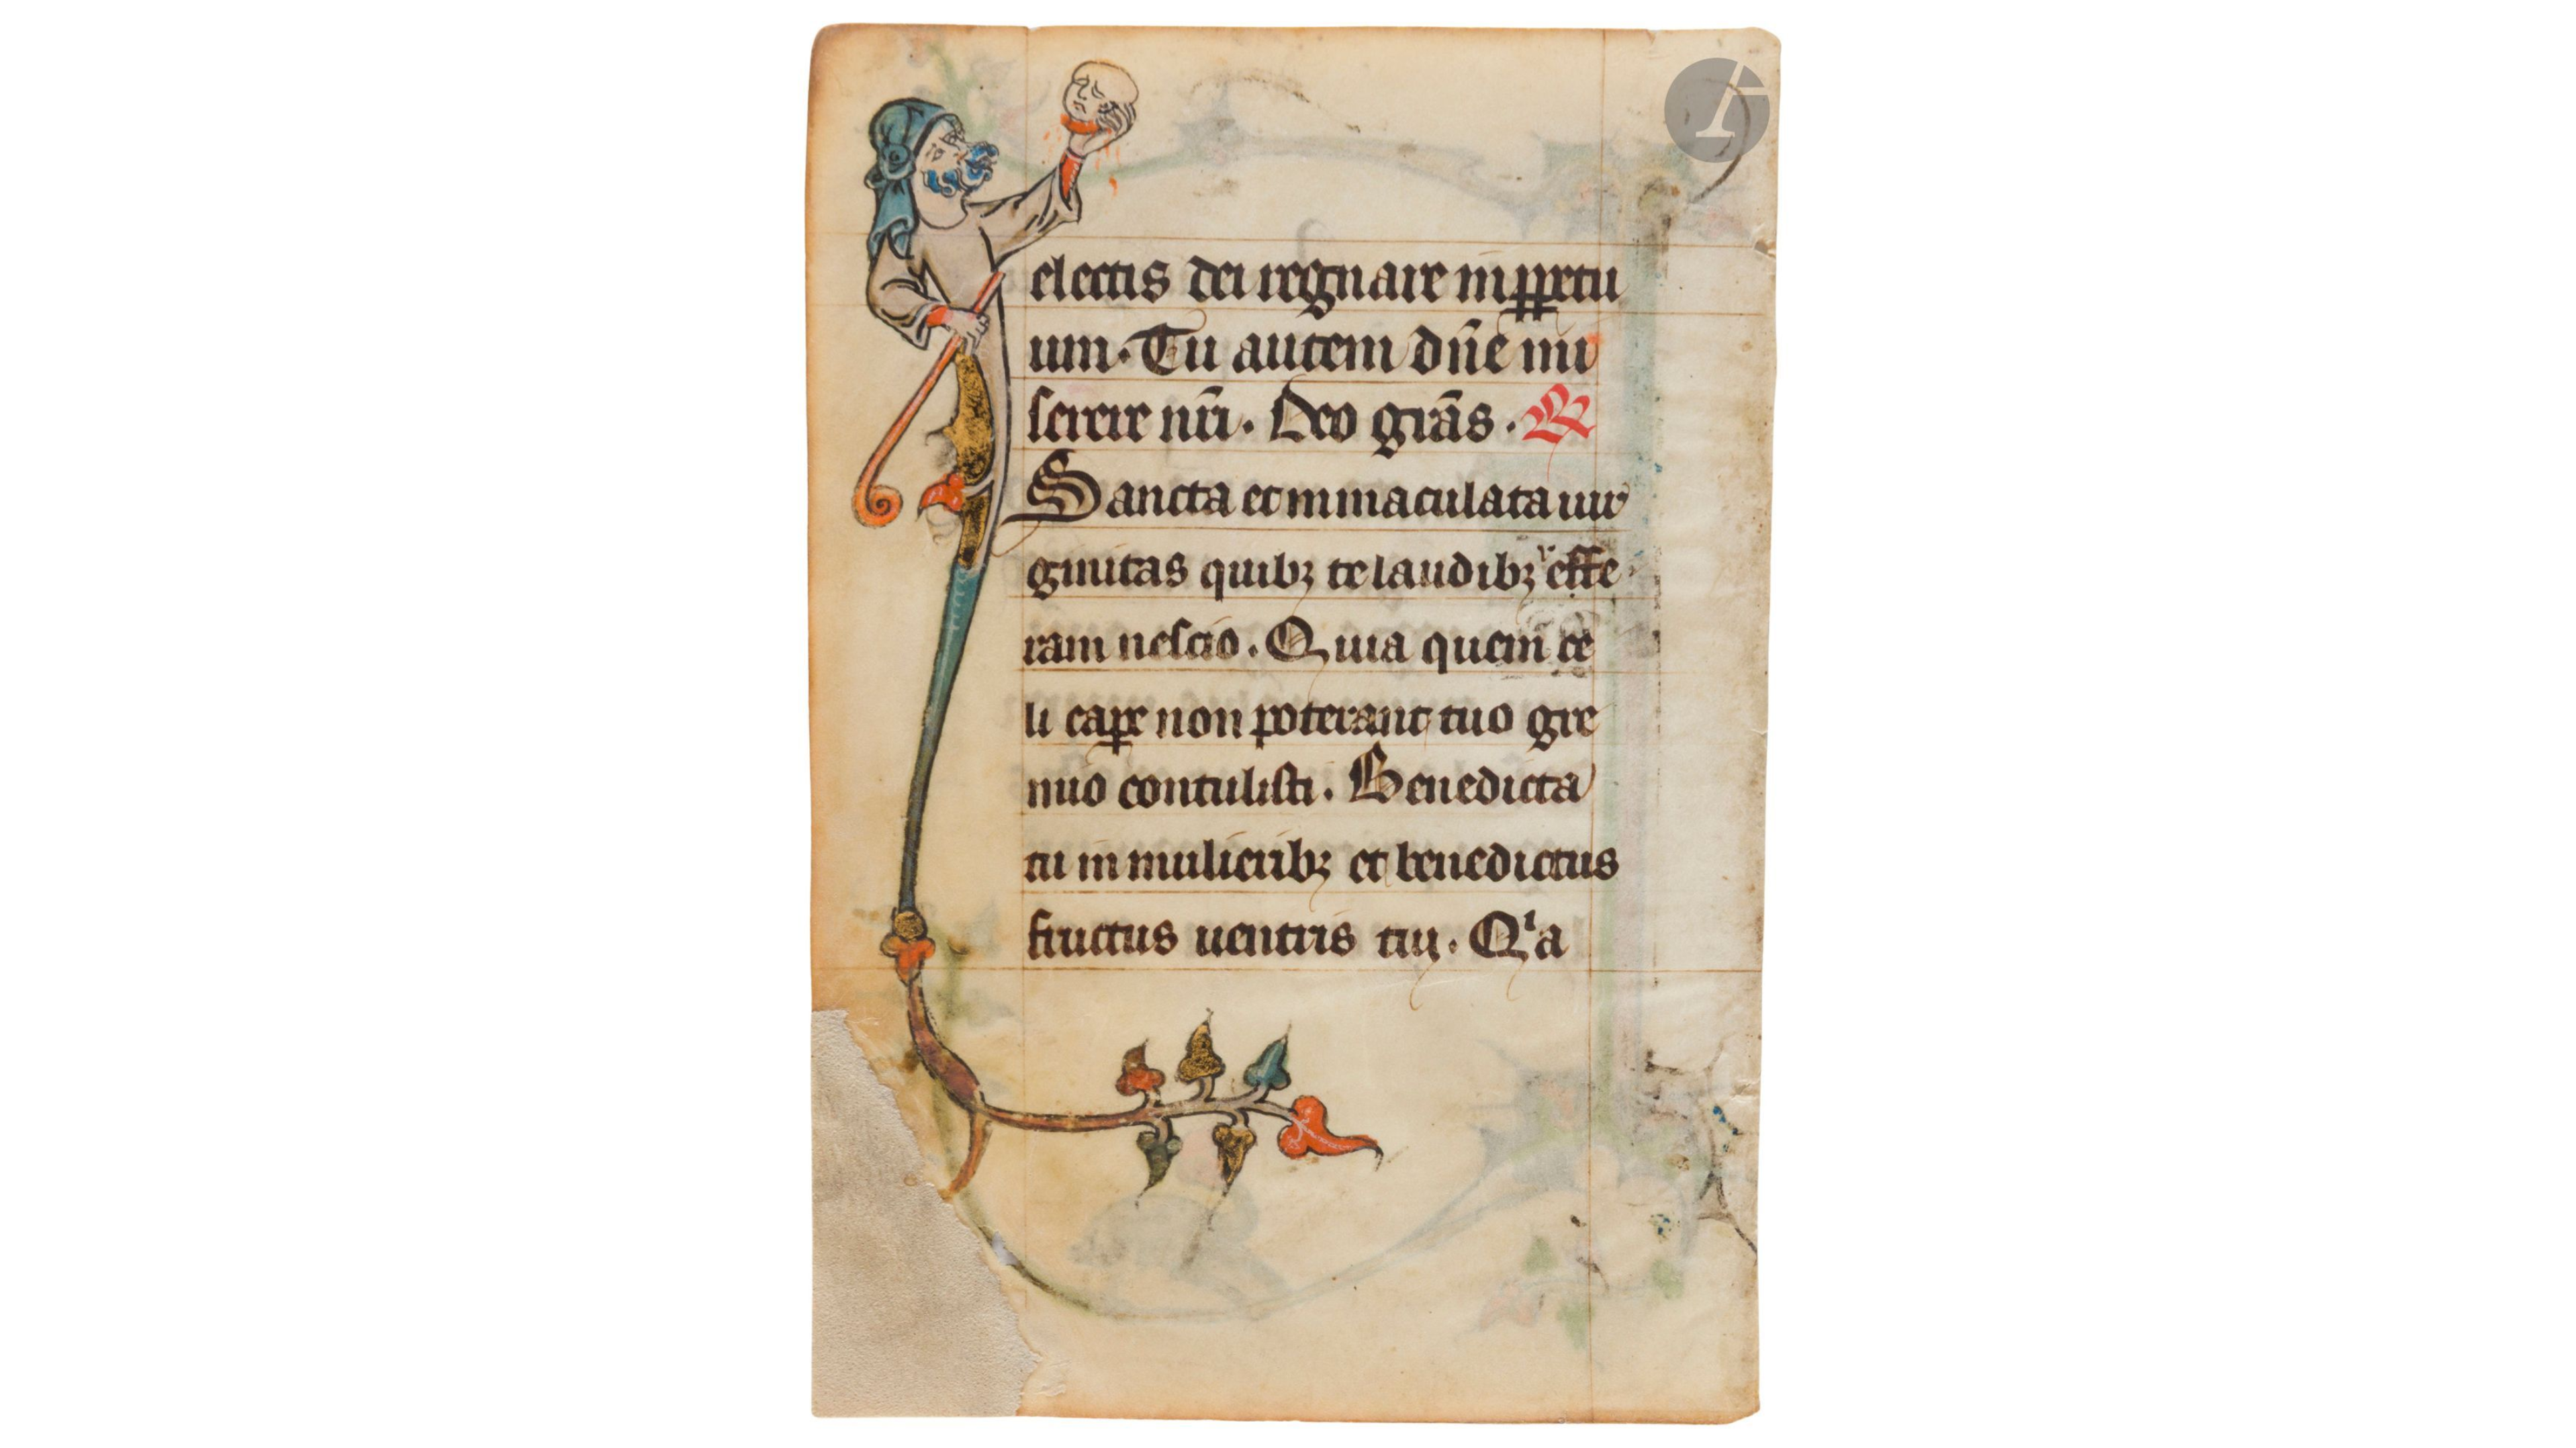 electis dei regnare in ꝑꝑetu
um. Tu autem dn̄e mi
serere nr̄i. Deo grās. ℟
Sancta et inmaculata uir
ginitas quibꝫ te laudibꝫ effe
ram nescio. Quia quem ce
li caꝑe non poterant tuo gre
mio contulisti. Benedicta
tu in mulieribꝫ et benedictus
fructus uentris tui. Qⁱa